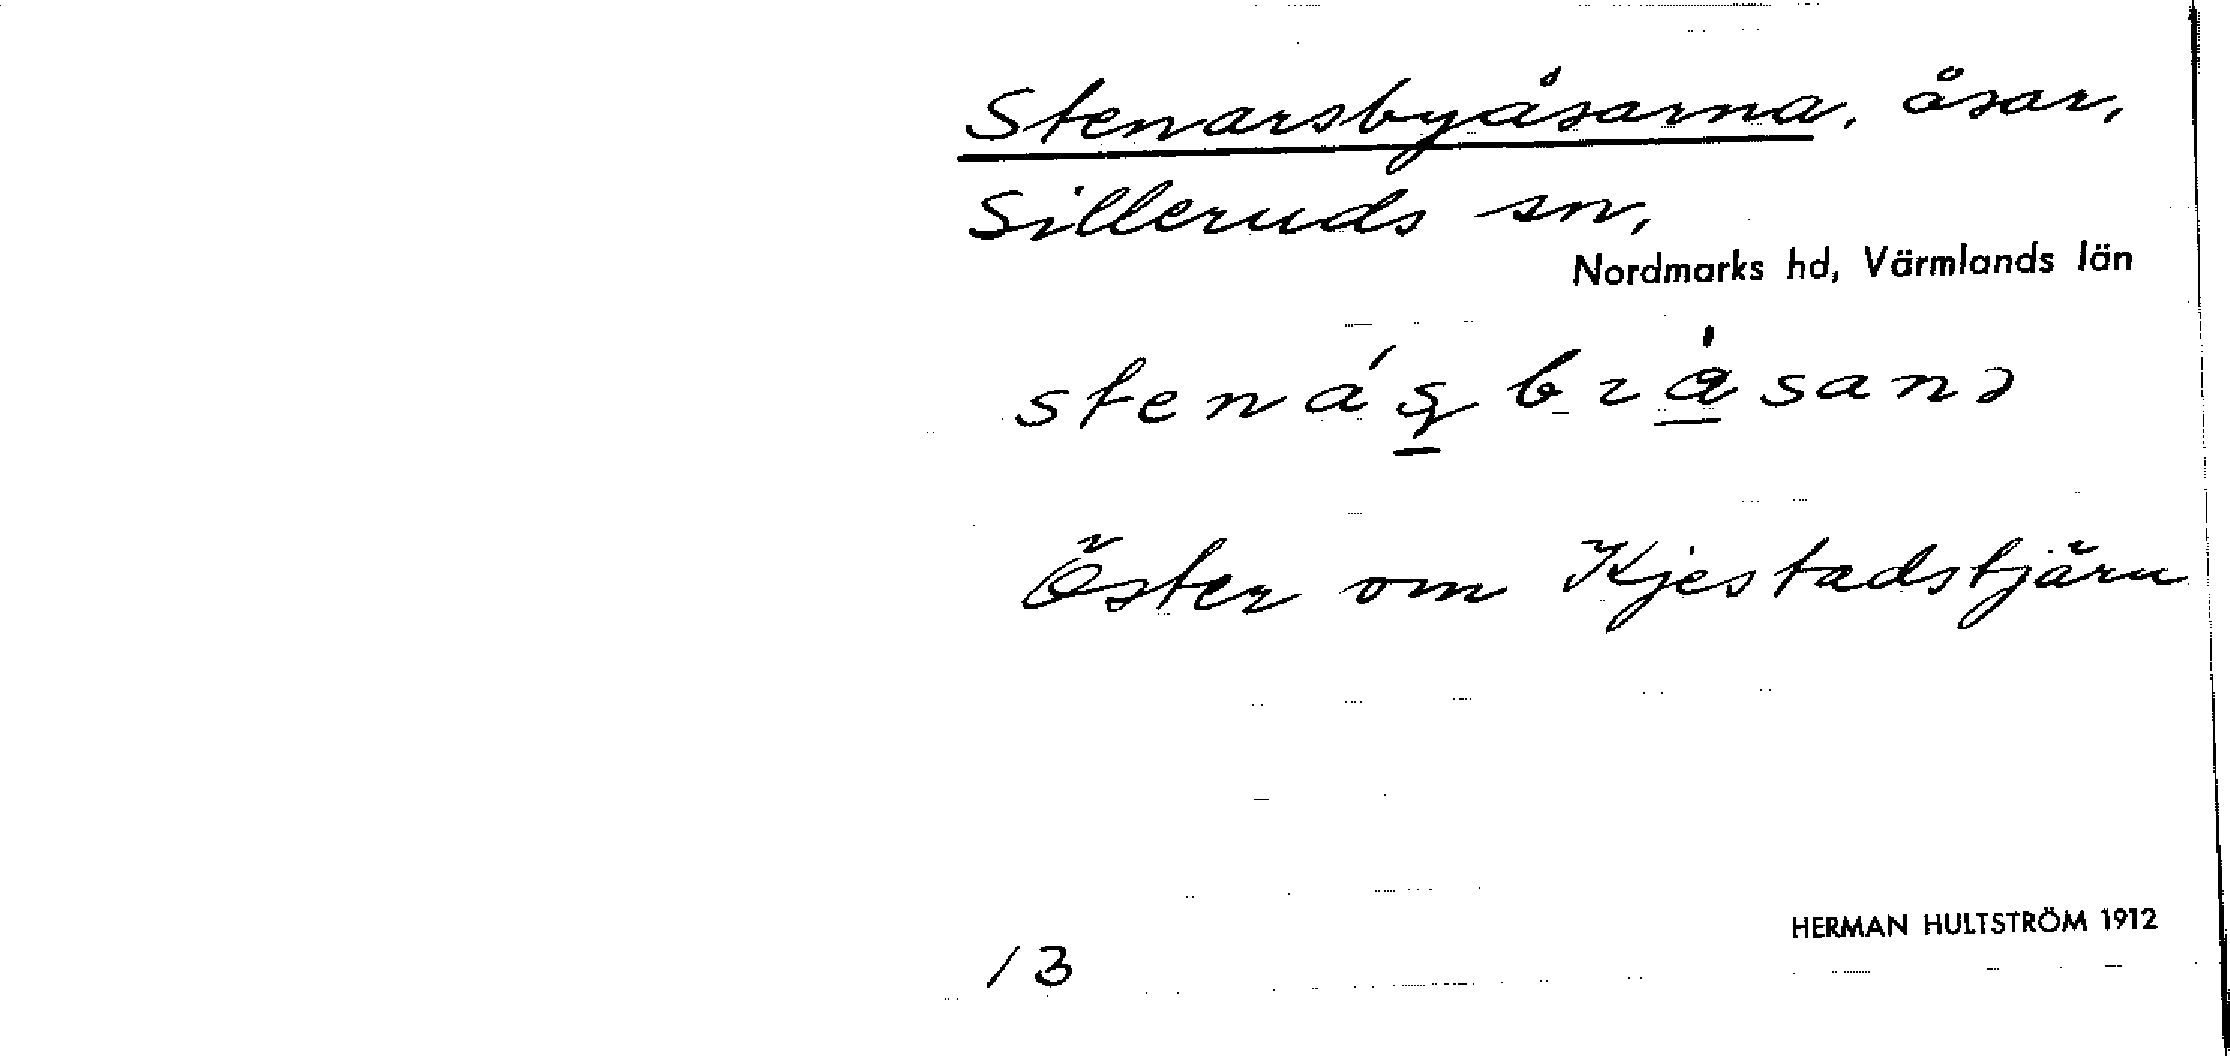 Stenarsbyåsarna, åsar,
Silleruds sn,
Nordmarks hd, Värmlands län
Öster om Kjestadstjärn
HERMAN HULTSTRÖM 1912
13